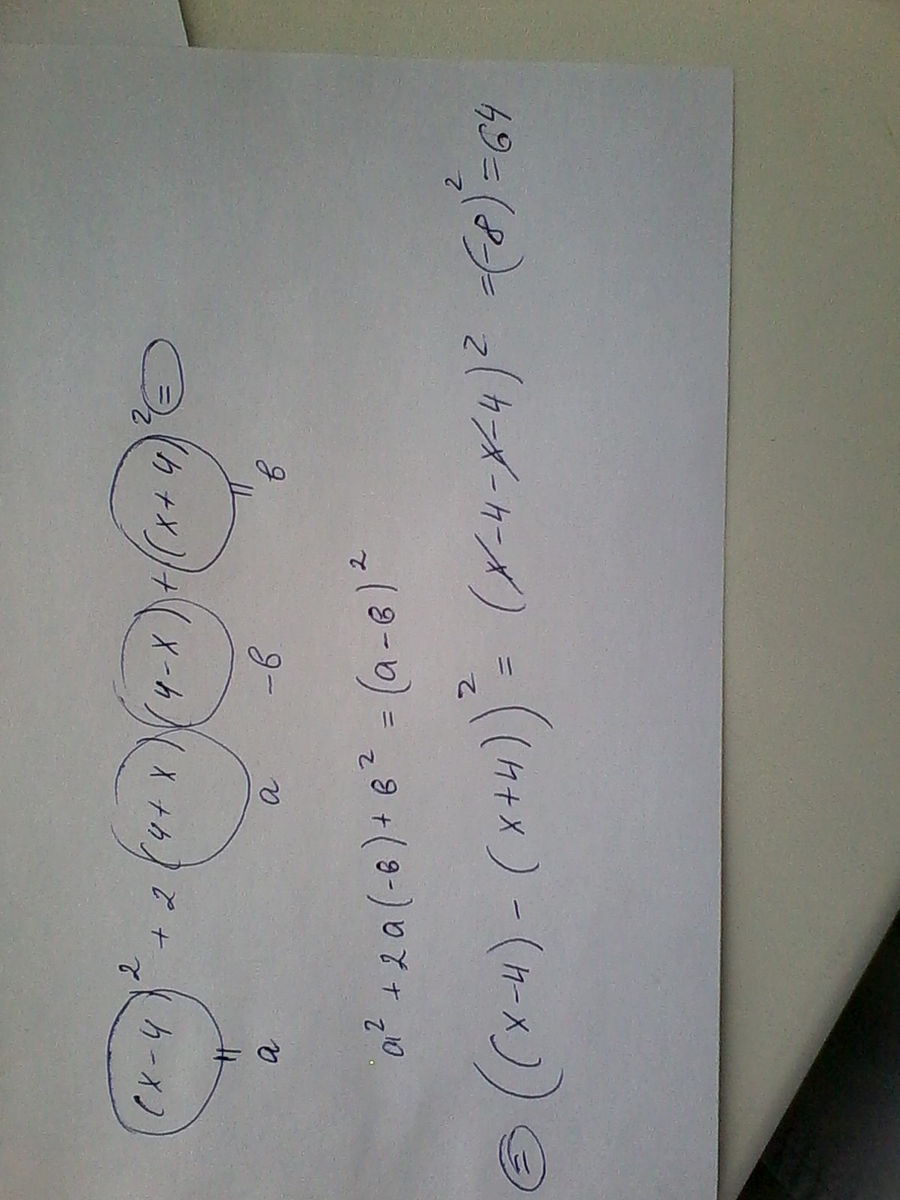 (x-4)² + 2(4+x)(4-x)+(x+4)² =
a a -в в
a² + 2a(-в)+в² = (a-в)²
= ((x-4) - (x+4))² = (x-4-x-4)² =(-8)²=64